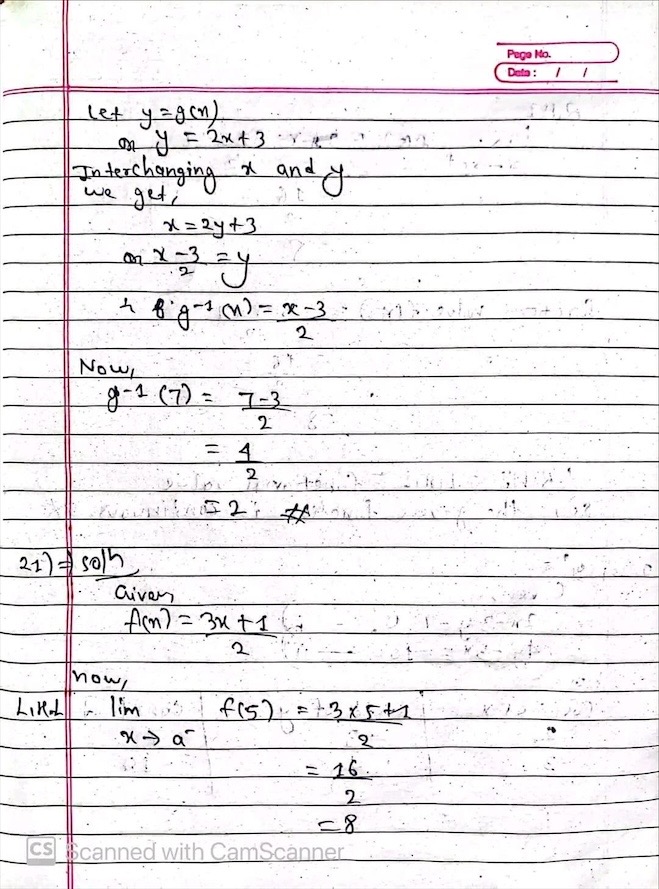 Page No.
Date : / /
Let y = g(x)
or y = 2x+3
Interchanging x and y
we get,
x = 2y+3
or x-3/2 = y
g-1 (x) = x-3/2
Now,
g-1 (7) = 7-3/2
= 4/2
= 2 #
21) => soln
Given
f(x) = 3x+1/2
now,
L.H.L lim x→a- f(5) = 3x5+1/2
= 16/2
= 8
CS Scanned with CamScanner